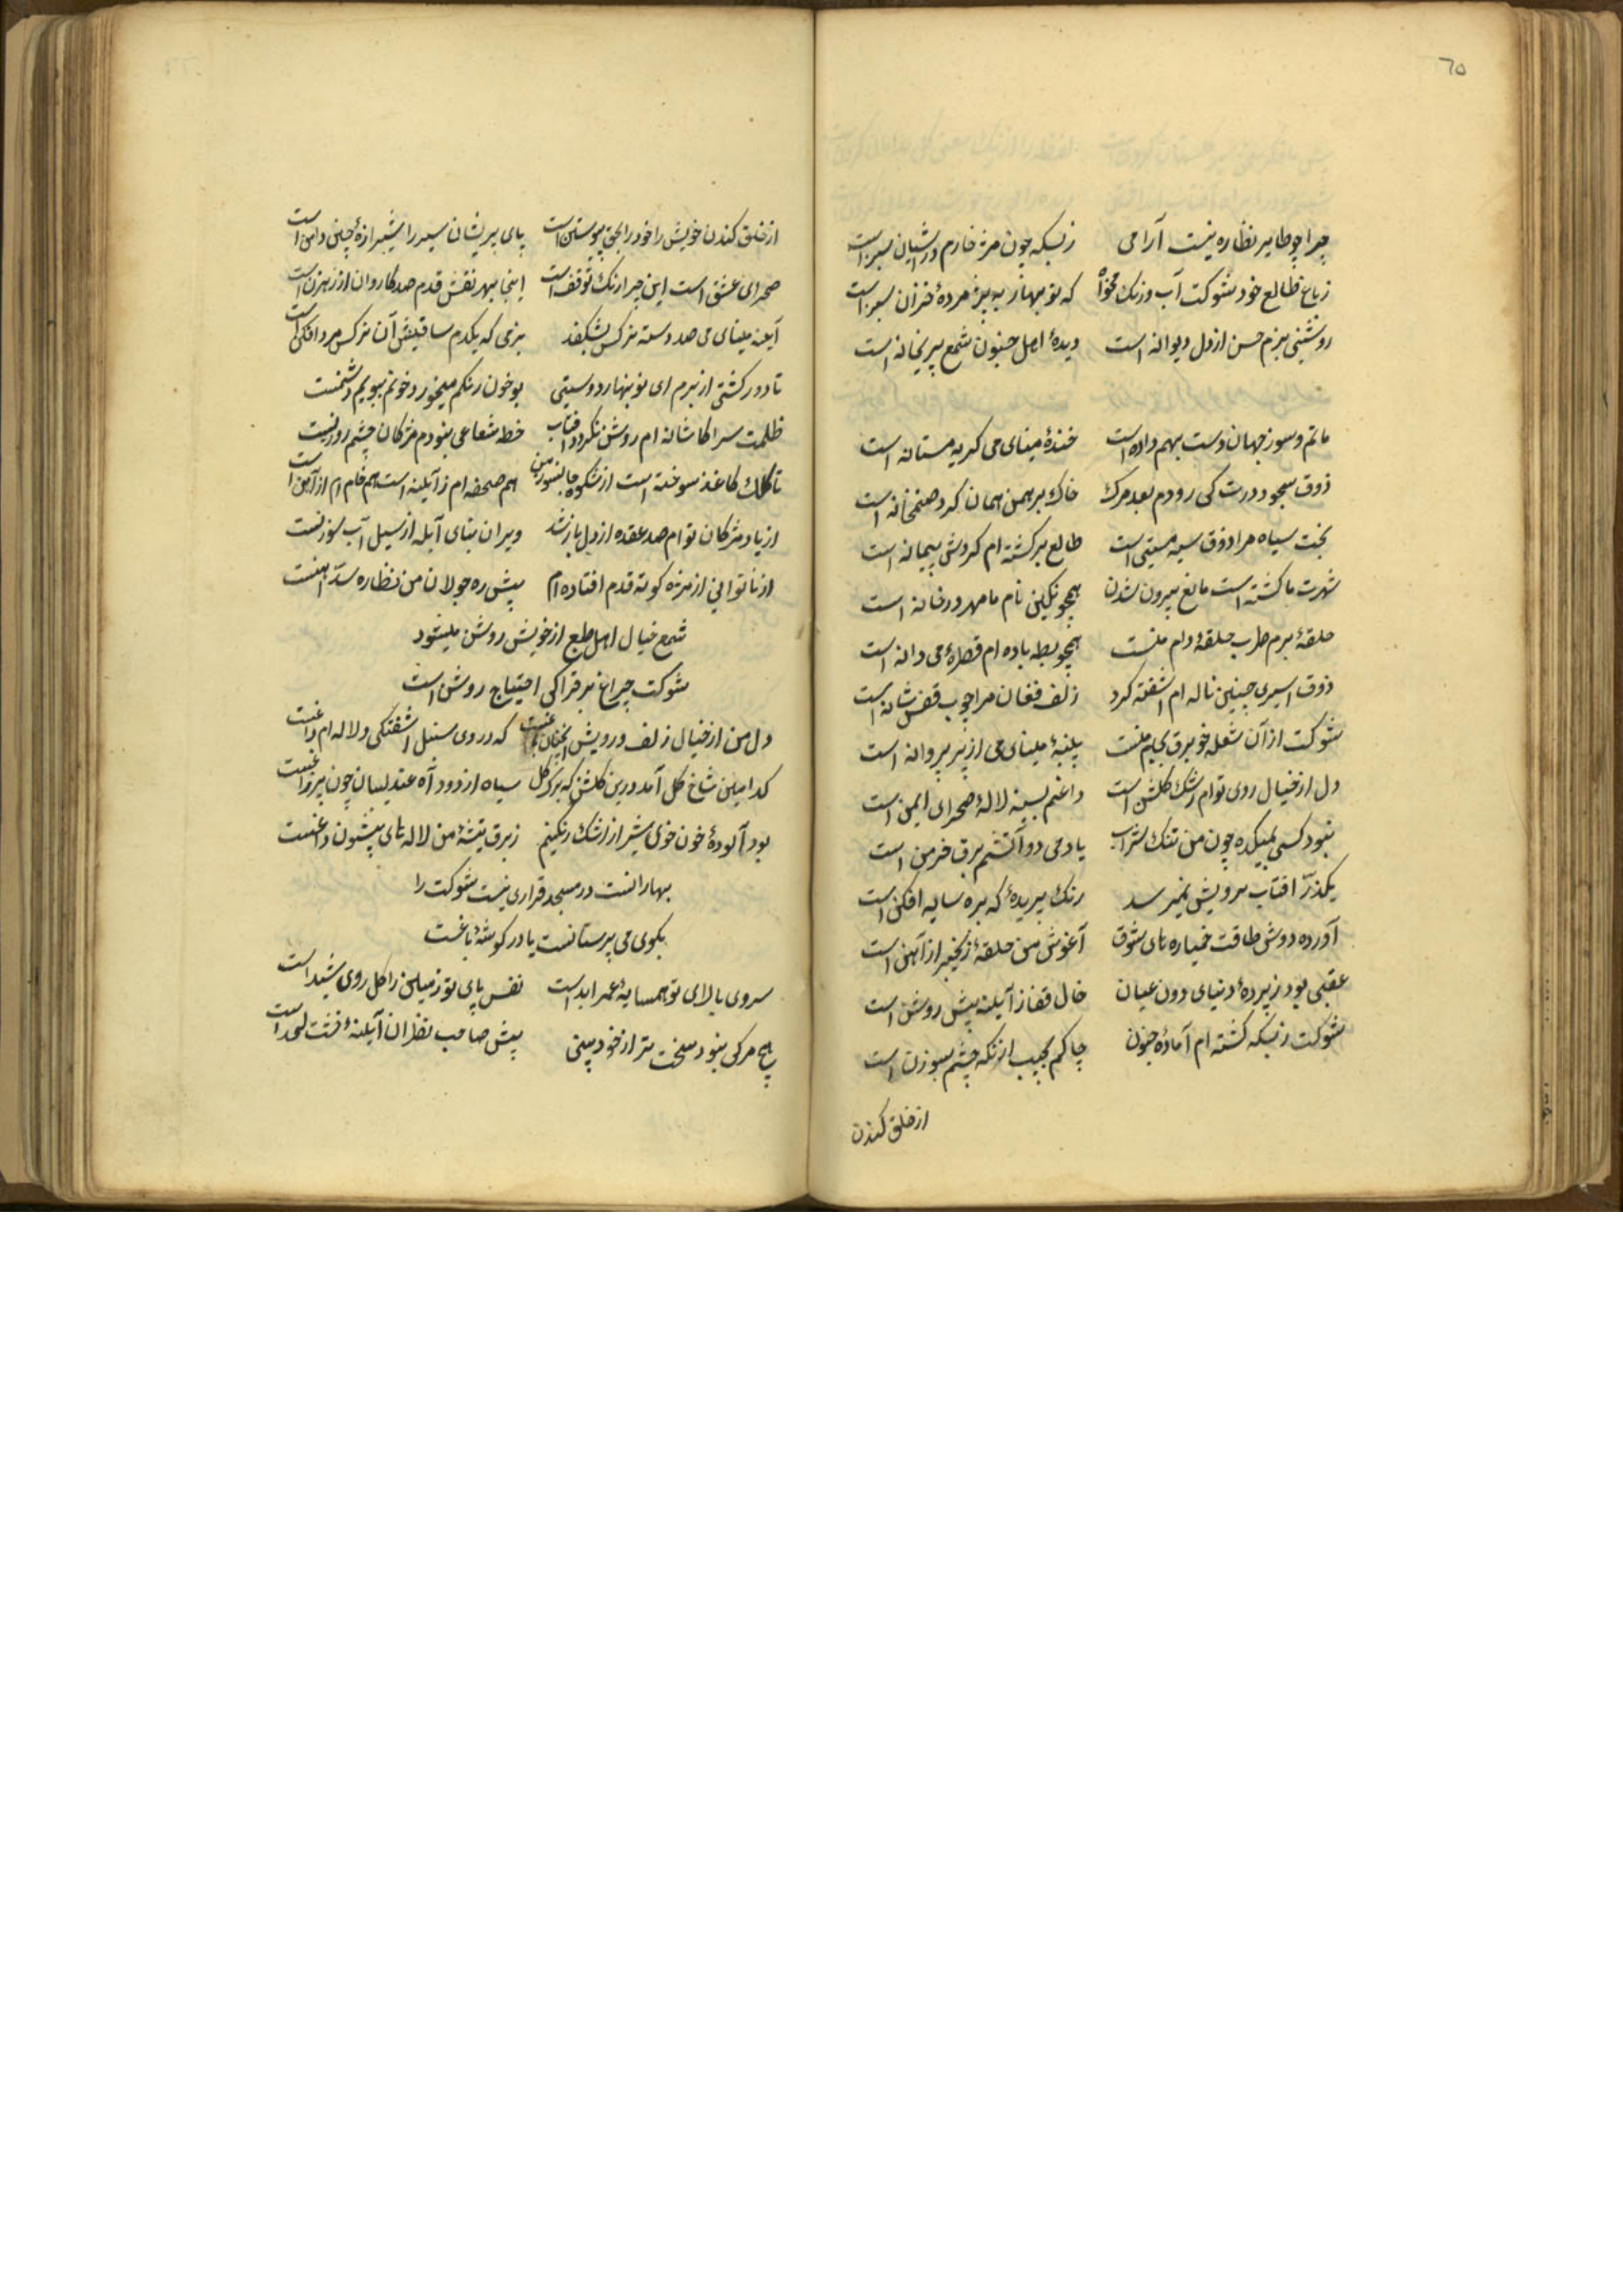 ٦٥
چرا چو طایر نظاره نیست آرامی زبسکه چون مژه خارم در آشیان سبز است
ز باغ طالع خود شوکت آب و رنگ مخواه که نو بهار به پژمرده خزان سبز است
روشنی بزم حسن از دل دیوانه است دیدهٔ اهل جنون شمع پریخانه است
ماتم و سور جهان دست بهم داده است خندهٔ مینای می گریه مستانه است
ذوق سجود درت کی رودم بعد مرگ خاک برهمن همان گرد صنمخانه است
بخت سیاه مرا ذوق سیه مستی است طالع برگشته ام گردش پیمانه است
شهرت ما گشته است مانع بیرون شدن همچو نگین نام ما مهر در خانه است
حلقهٔ بزم طرب حلقهٔ دام منست همچو بط باده ام قطرهٔ می دانه است
ذوق اسیری چنین ناله ام آشفته کرد زلف فغان مرا چوب قفس شانه است
شوکت از آن شعله خو برق بجام منست پنبهٔ مینای می از پر پروانه است
دل از خیال روی توام رشک گلشن است داغم بسینه لالهٔ صحرای ایمن است
نبود کسی بمیکده چون من تنک شراب یاد می دو آتشم برق خرمن است
یکذرّه آفتاب برویش نمیرسد رنگ پریدهٔ که بره سایه افکن است
آورده دوش طاقت خمیازه های شوق آغوش من حلقهٔ زنجیر از آهن است
عقبی بود ز پردهٔ دنیای دون عیان خال قفا ز آینه پیش روشن است
شوکت زبسکه گشته ام آمادهٔ جنون چاکم بجیب از نگه چشم سوزن است
از خلق کندن
از خلق کندن خویش را خود را بحق پیوستن است پای پریشان سیر را شیرازهٔ چین دامن است
صحرای عشق است این چرا رنگ توقف است اینجا بهر نقش قدم صد کاروان از رهزن است
آینه مینای می صد دسته نرگس بشکفد بزمی که یکدم ساقیش آن نرگس مرد افکن است
تا دور گشتی از برم ای نو بهار دوستی بو خون رنگم میخورد خونم ببویم دشمنست
ظلمت سرا کاشانه ام روشن نگردد آفتاب خط شعاعی بنودم مژگان چشم روزنست
تا کلک کاغذ سوخته است از شکوه جانسوز من هم صحفه ام ز آینه است هم خام ام از آهن است
از یاد مژگان توام صد عقده از دل باز شد ویران بنای آبله از سیل آب سوزنست
از ناتوانی از مژه کوته قدم افتاده ام پیش ره جولان من نظاره سدّ آهنست
شمع خیال اهل طبع از خویش روشن میشود
شوکت چراغ برق را کی احتیاج روشن است
دل من از خیال زلف و رویش آنچنان باغیست که در وی سنبل آشفتگی و لاله ام داغیست
کدامین شاخ گل آمد درین گلشن که برگ گل سیاه از دود آه عندلیبان چون پر زاغیست
بود آلودهٔ خون خوی شیر از اشک رنگینم ز برق تیشهٔ من لاله های بیستون داغیست
بهارانست در مسجد قراری نیست شوکت را
بکوی می پرستانست یا در گوشهٔ باغیست
سروی بالای تو همسایهٔ عمر ابد است نقش پای تو زمین را گل روی سبد است
هیچ مرگی نبود سخت تر از خود بینی پیش صاحب نظران آینهٔ خشت لحد است